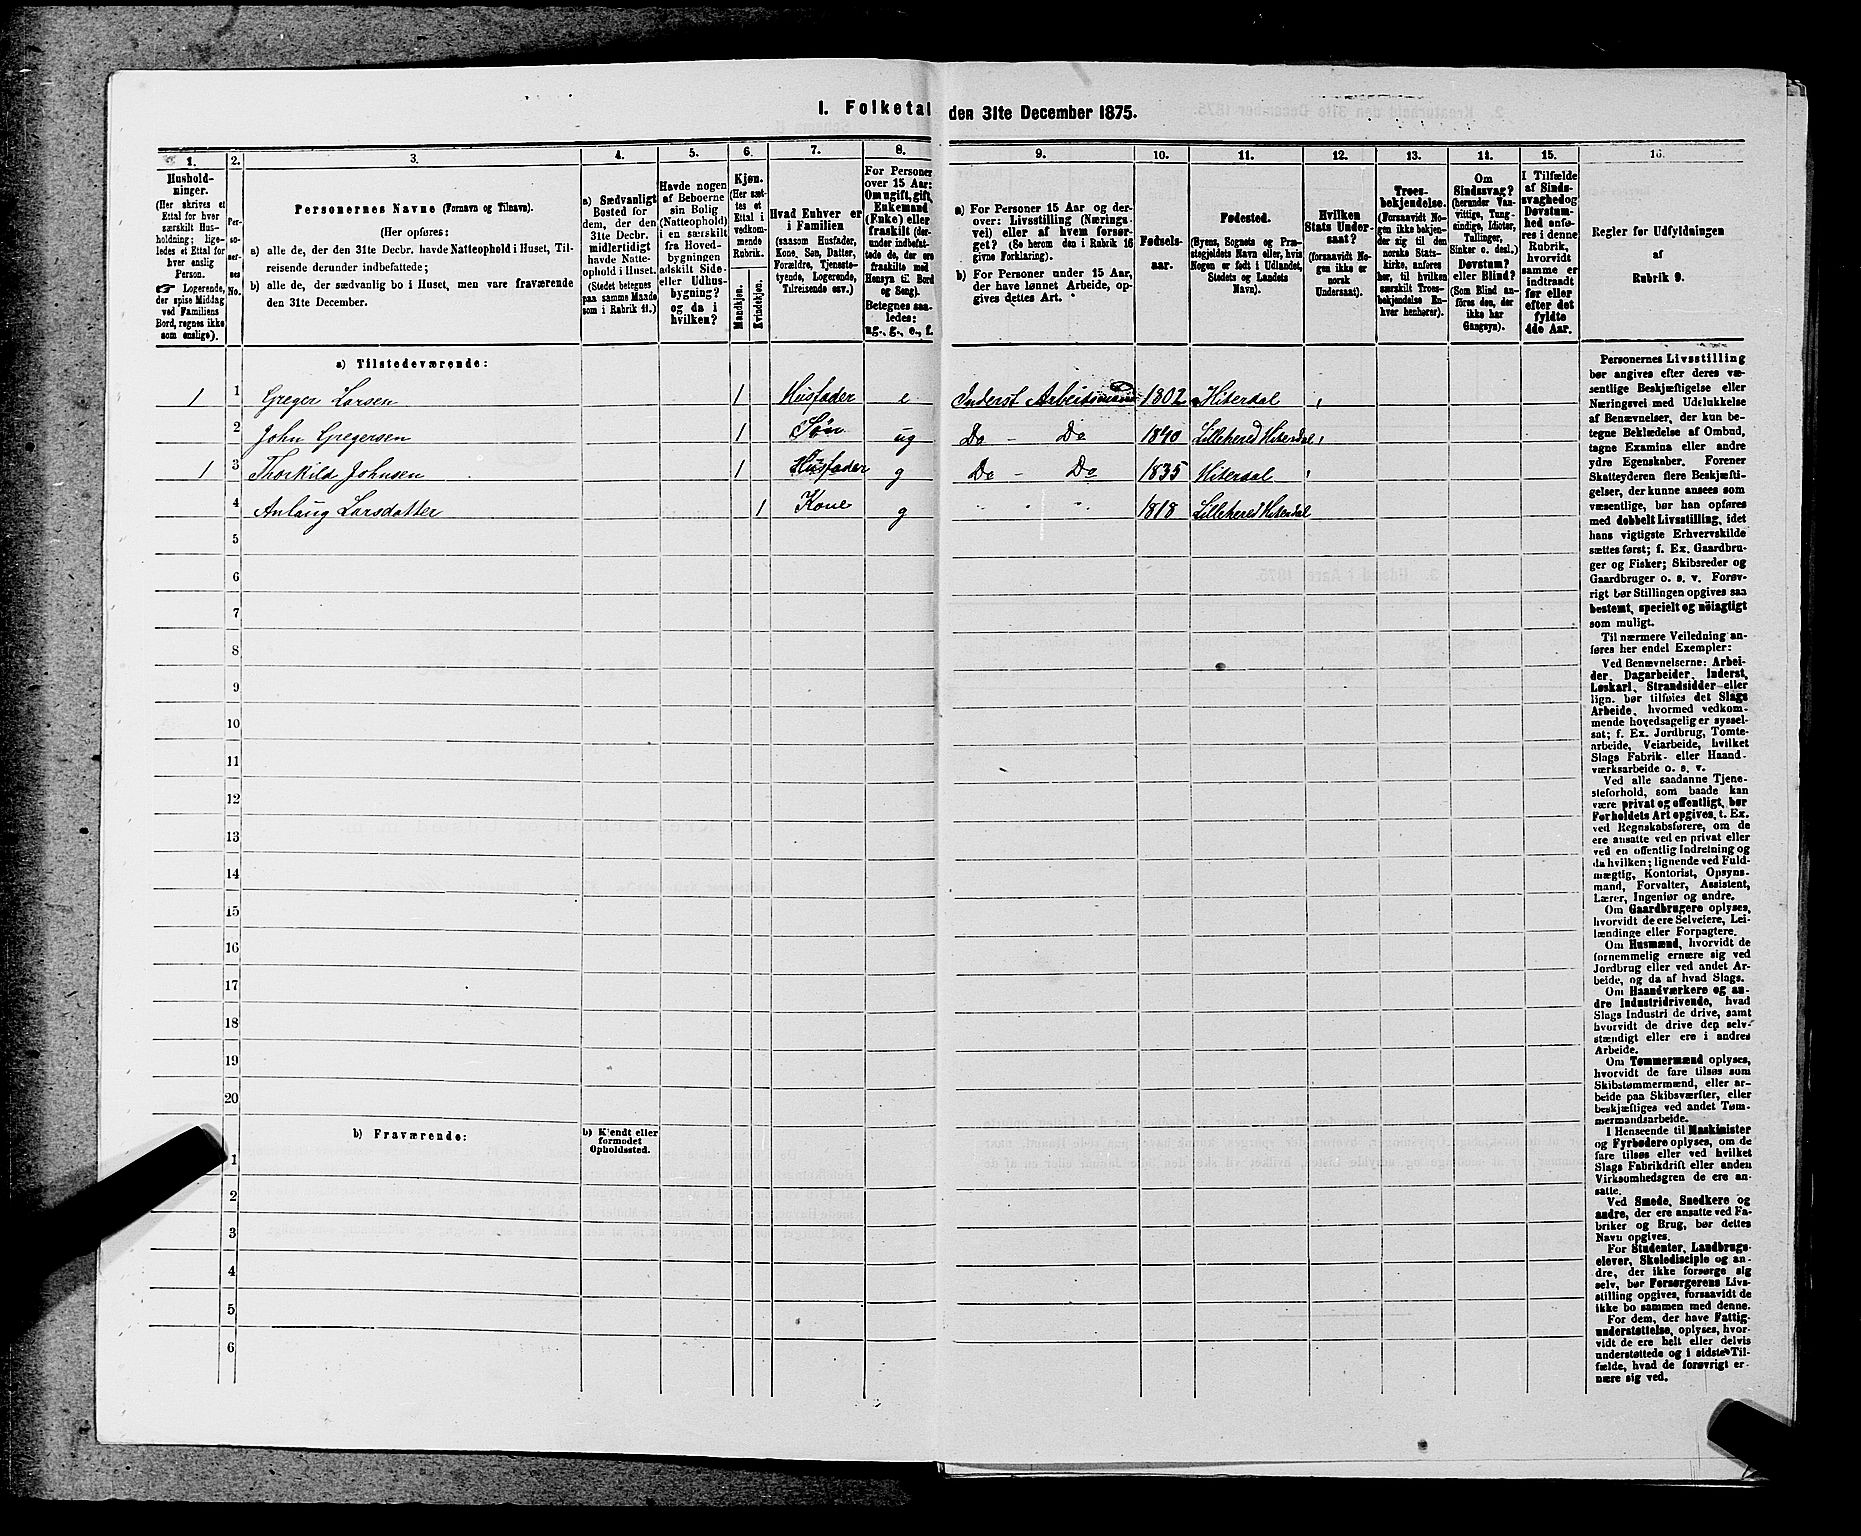 I. Folketal den 31te December 1875.
1. 2. 3. 4. 5. 6. 7. 8. 9. 10. 11. 12. 13. 14. 15. 16.
Hushold-
ninger.
(Her skrives et
Ettal for hver
særskilt Hus-
holdning; lige-
ledes et Ettal for
hver enslig
Person.
☞ Logerende,
der spise Middag
ved Familiens
Bord, regnes ikke
som enslige).
Per-
so-
ner-
nes
No.
Personernes Navne (Fornavn og Tilnavn).
(Her opføres:
a) alle de, der den 31te Decbr. havde Natteophold i Huset, Til-
reisende derunder indbefattede;
b) alle de, der sædvanlig bo i Huset, men vare fraværende
den 31te December.
a) Sædvanligt
Bosted for
dem, der den
31te Decbr.
midlertidigt
havde Natte-
ophold i Huset.
(Stedet betegnes
paa samme Maade
som i Rubrik 11.)
Havde nogen
af Beboerne
sin Bolig
(Natteophold)
i en særskilt
fra Hoved-
bygningen
adskilt Side-
eller Udhus-
bygning?
og da i
hvilken?
Kjøn.
(Her sæt-
tes et
Ettal i
vedkom-
mende
Rubrik.
Mandkjøn.
Kvindekjøn.
Hvad Enhver er
i Familien
(saasom Husfader,
Kone, Søn, Datter,
Forældre, Tjeneste-
tyende, Logerende,
Tilreisende osv.)
For Personer
over 15 Aar:
Om ugift, gift,
Enkemand
(Enke) eller
fraskilt (der-
under indbefat-
tede de, der ere
fraskilte med
Hensyn til Bord
og Seng).
Betegnes saa-
ledes:
ug., g., e., f.
a) For Personer 15 Aar og der-
over: Livsstilling (Nærings-
vei) eller af hvem forsør-
get? (Se herom den i Rubrik 16
givne Forklaring).
b) For Personer under 15 Aar,
der have lønnet Arbeide, op-
gives dettes Art.
Fødsels-
aar.
Fødested.
(Byens, Sognets og Præ-
stegjeldets Navn eller, hvis
Nogen er født i Udlandet,
Stedets og Landets
Navn).
Hvilken
Stats Under-
saat?
(forsaavidt No-
gen ikke er
norsk
Undersaat).
Troes-
bekjendelse.
(Forsaavidt No-
gen ikke bekjen-
der sig til den
norske Stats-
kirke, anføres
her, til hvilken
særskilt Troes-
bekjendelse En-
hver henhører).
Om
Sindssvag?
(herunder Van-
vittige, Tung-
sindige, Idioter,
Tullinger,
Sinker o. desl.).
Døvstum?
eller Blind?
(Som Blind an-
føres den, der
ikke har
Gangsyn).
I Tilfælde
af Sinds-
svaghed og
Døvstum-
hed anfø-
res i denne
Rubrik,
hvorvidt
samme er
indtraadt
før eller
efter det
fyldte
4de Aar.
Regler for Udfyldningen
af
Rubrik 9.
a) Tilstedeværende:
1 1 Greger Larsen 1 Husfader e Inderst Arbeidsmand 1802 Hiterdal
2 John Gregersen 1 Søn ug Do - Do 1840 Lillehered Hiterdal
1 3 Thorkild Johnsen 1 Husfader g Do - Do 1835 Hiterdal
4 Anlaug Larsdatter 1 Kone g " " " 1818 Lillehered Hiterdal
5
6
7
8
9
10
11
12
13
14
15
16
17
18
19
20
b) Fraværende:
b) Kjendt eller
formodet
Opholdssted.
1
2
3
4
5
6
Personernes Livsstilling
bør angives efter deres væ-
sentlige Beskjæftigelse eller
Næringsvei med Udelukkelse
af Benævnelser, der kun be-
tegne Beklædelse af Ombud,
tagne Examina eller andre
ydre Egenskaber. Forener
Skatteyderen flere Beskjæfti-
gelser, der kunne ansees som
væsentlige, bør han opføres
med dobbelt Livsstilling, idet
hans vigtigste Erhvervskilde
sættes først; f. Ex. Gaardbru-
ger og Fisker; Skibsreder og
Gaardbruger o. s. v. Forøv-
rigt bør Stillingen opgives saa
bestemt, specielt og nøiagtigt
som muligt.
Til nærmere Veiledning an-
føres her endel Exempler:
Ved Benævnelserne: Arbei-
der, Dagarbeider, Inderst,
Løskarl, Strandsidder eller
lign. bør tilføies det Slags
Arbeide, hvormed vedkom-
mende hovedsagelig er syssel-
sat; f. Ex. Jordbrug, Tomte-
arbeide, Veiarbeide, hvilket
Slags Fabrik- eller Haand-
værksarbeide o. s. v.
Ved alle saadanne Tjene-
steforhold, som baade kan
være privat og offentligt, bør
Forholdets Art opgives, t. Ex.
ved Regnskabsførere, om de
ere ansatte ved en privat eller
ved en offentlig Indretning og
da hvilken; lignende ved Fuld-
mægtig, Kontorist, Opsyns-
mand, Forvalter, Assistent,
Lærer, Ingeniør og andre.
Om Gaardbrugere oplyses,
hvorvidt de ere Selveiere, Lei-
lændinge eller Forpagtere.
Om Husmænd, hvorvidt de
fornemmelig ernære sig ved
Jordbrug eller ved andet Ar-
beide, og da af hvad Slags.
Om Haandværkere og an-
dre Industridrivende, hvad
Slags Industri de drive, samt
hvorvidt de drive den selv-
stændigt eller ere i andres
Arbeide.
Om Tømmermænd oplyses,
hvorvidt de fare tilsøs som
Skibstømmermænd, eller ar-
beide paa Skibsværfter, eller
beskjæftiges ved andet Tøm-
mermandsarbeide.
I Henseende til Maskinister
og Fyrbødere oplyses, om de
fare tilsøs eller ved hvilket
Slags Fabrikdrift eller anden
Virksomhedsgren de ere an-
satte.
Ved Smede, Snedkere og
andre, der ere ansatte ved Fa-
briker og Brug, bør dettes
Navn opgives.
For Studenter, Landbrugs-
elever, Skoledisciple og an-
dre, der ikke forsørge sig
selv, bør Forsørgerens Livs-
stilling opgives, forsaavidt de
ikke bo sammen med denne.
For dem, der have Fattig-
understøttelse, oplyses, hvor-
vidt de ere helt eller delvis
understøttede og i sidste Til-
fælde, hvad de forøvrigt er-
nære sig ved.